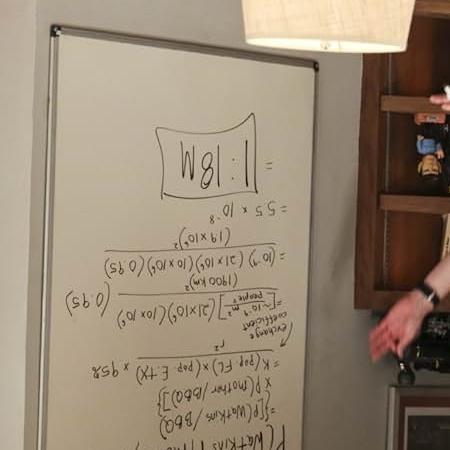 P(Watkins
={[P(Watkins / BBQ)
x P(mother / BBQ)]}
= K (pop. FL) x (pop. E. TX) x 95%
r²
exchange
coefficient
= [~10⁻⁹ m² / people²] (21x10⁶)(10x10⁶) (0.95)
(1900 km)²
= (10⁻⁹) (21 x 10⁶)(10x10⁶)(0.95)
(1.9 x 10⁶)²
= 5.5 x 10⁻⁸
= 1 : 18M